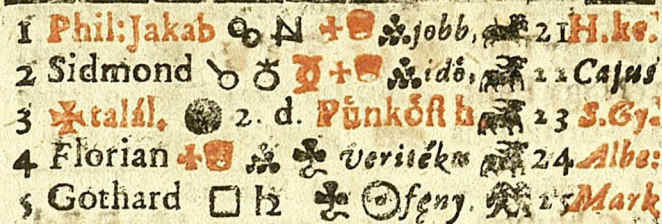 1 Phil: Jakab ☍ ♄ jobb, 21 H. ke.
2 Sidmond ☌ ♁ ☿ idő, 22 Cajus
3 ✠ talál. 2. d. Pünkőst h. 23 S. Gy.
4 Florian veriték 24 Albe:
5 Gothard □ ♄ ☉ fény, 25 Mark